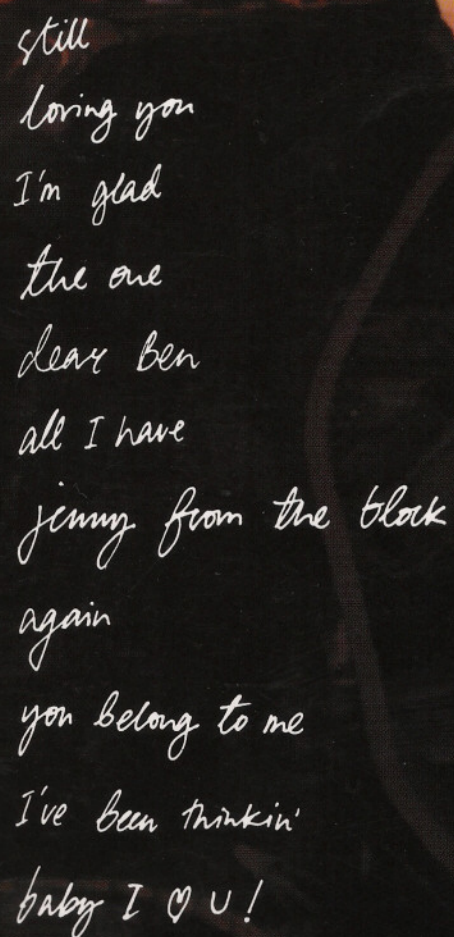 still
loving you
I'm glad
the one
dear Ben
all I have
jenny from the block
again
you belong to me
I've been thinkin'
baby I ♡ U!